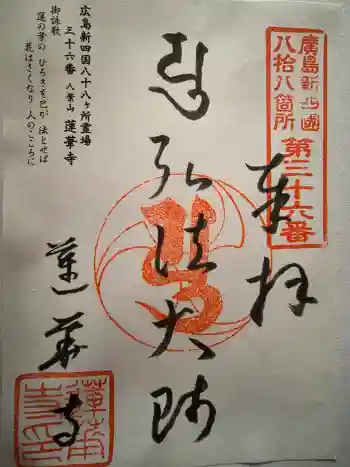 廣島新四國
八拾八箇所
第三十六番
奉拝
弘法大師
蓮華寺
広島新四国八十八ヶ所霊場
三十六番 八葉山 蓮華寺
御詠歌
蓮の華の ひろきを己が 法とせば
花はさくなり 人のこころに